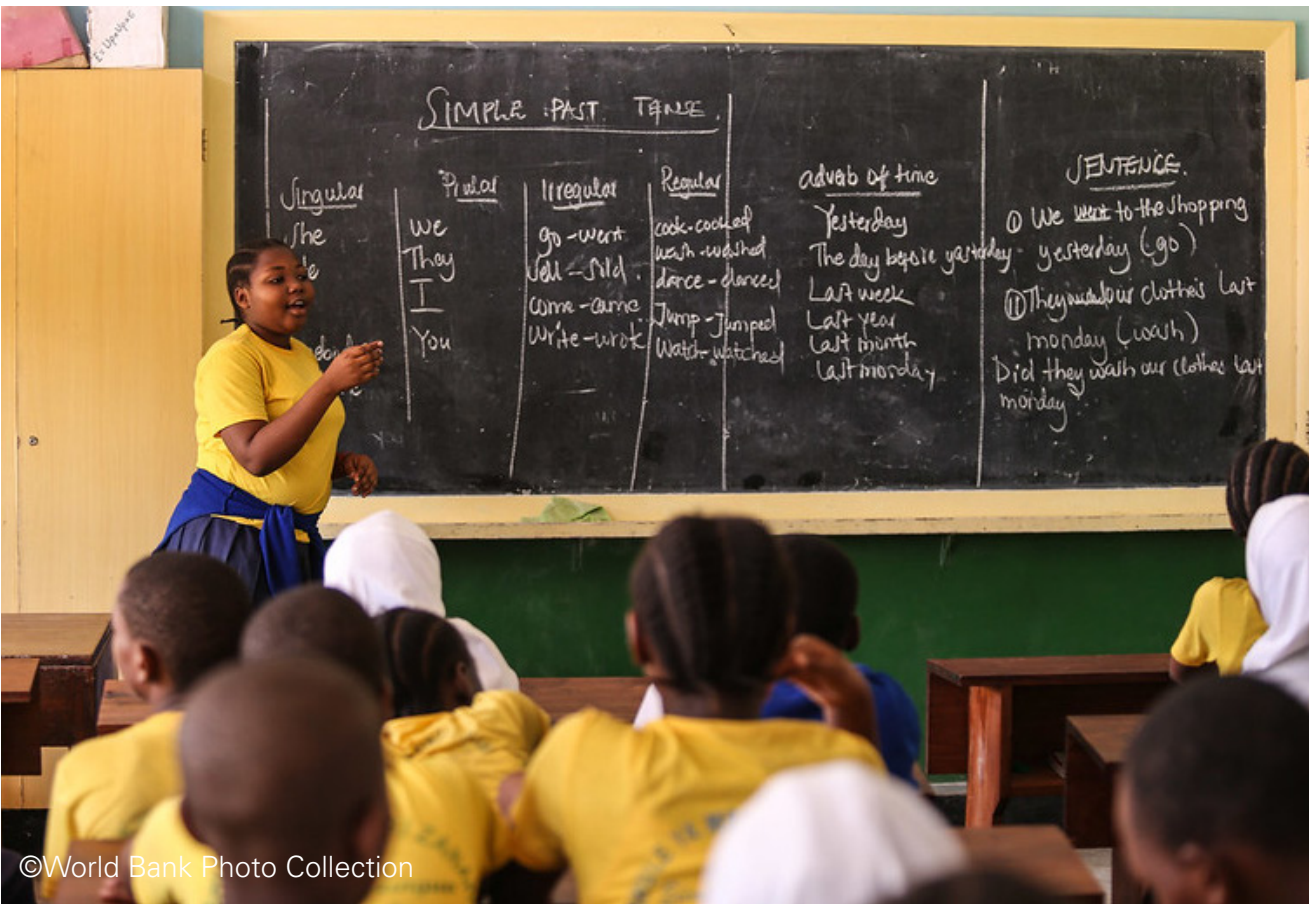 SIMPLE PAST TENSE.
Singular
She
Plular
We
They
I
You
Irregular
go - went
sell - Sold.
come - came
Write - wrote
Regular
cook - cooked
wash - washed
dance - danced
Jump - Jumped
Watch - watched
adverb of time
Yesterday
The day before yesterday
Last week
Last year
Last month
Last monday
SENTENCE.
① We went to the shopping
yesterday (go)
② They our clothes last
monday (wash)
Did they wash our clothes last
monday
©World Bank Photo Collection